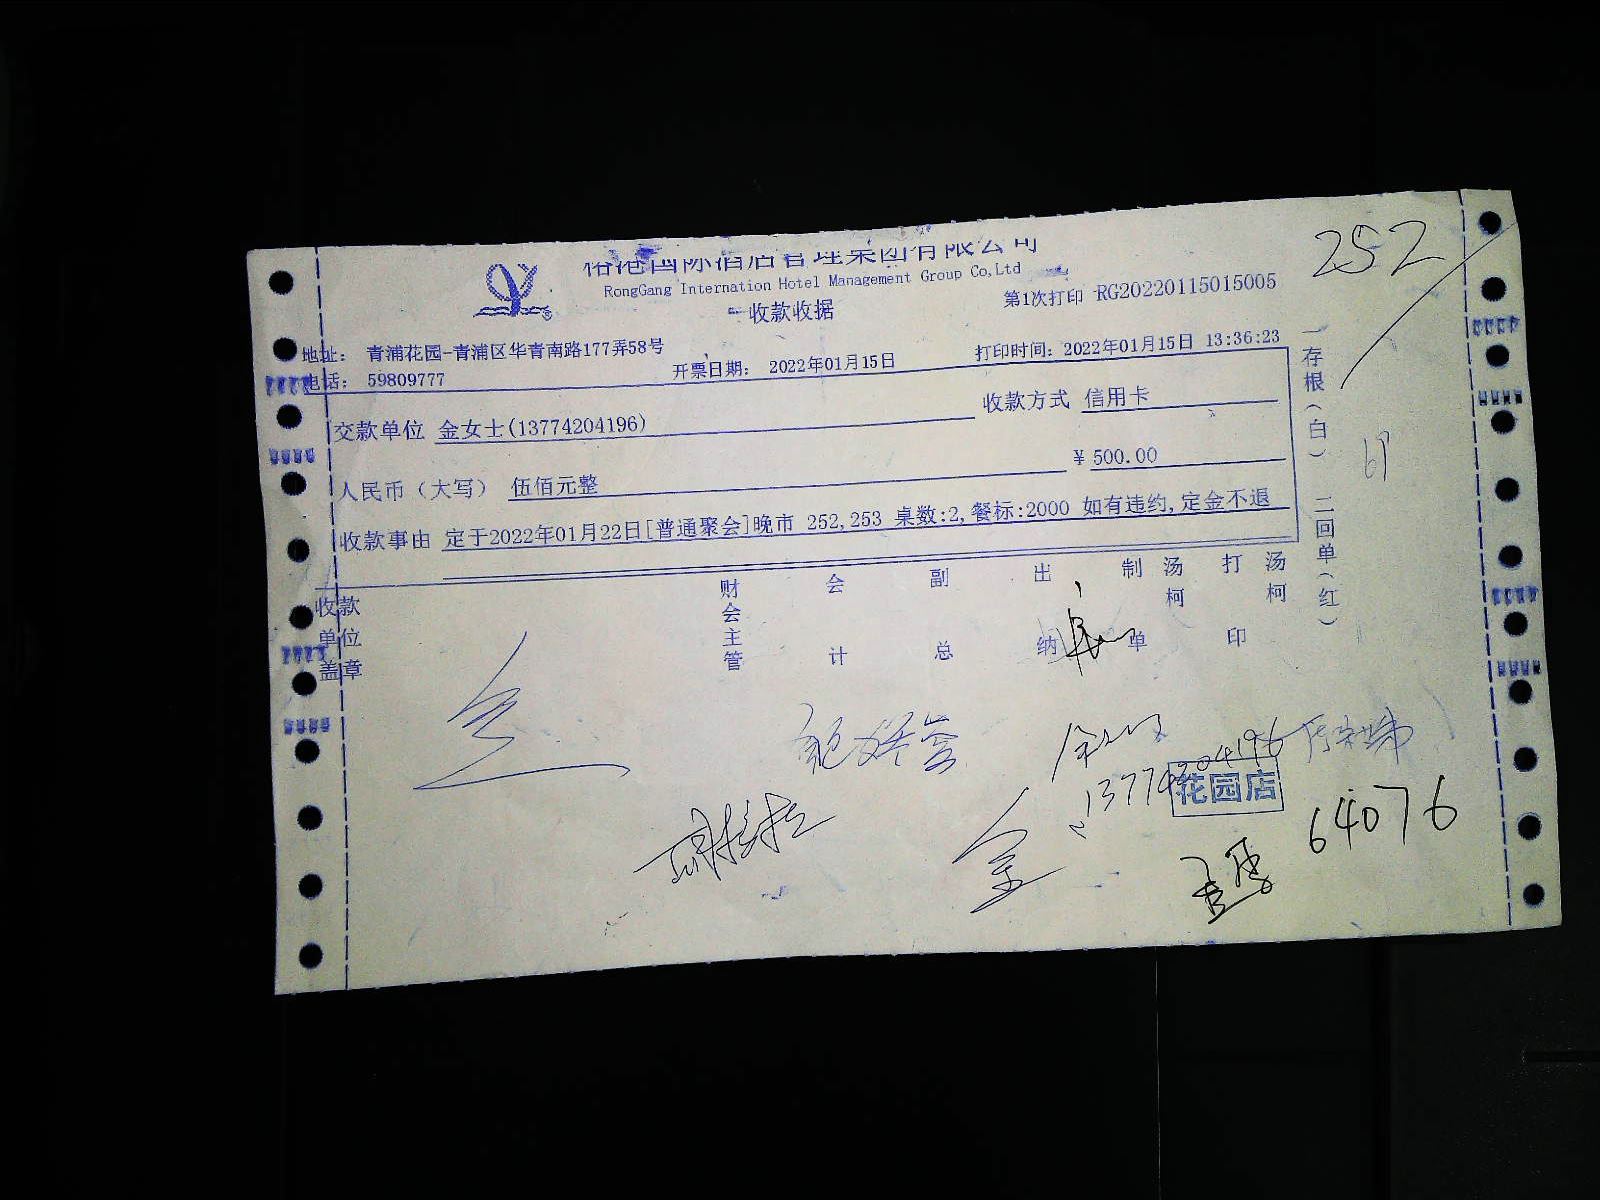 国际酒店管理集团有限公司
RongGang Internation Hotel Management Group Co,Ltd
收款收据
第1次打印 RG20220115015005
252
地址: 青浦花园-青浦区华青南路177弄58号
电话: 59809777
开票日期: 2022年01月15日
打印时间: 2022年01月15日 13:36:23
交款单位 金女士(13774204196)
收款方式 信用卡
人民币（大写） 伍佰元整
¥ 500.00
收款事由 定于2022年01月22日[普通聚会]晚市 252,253 桌数:2,餐标:2000 如有违约,定金不退
一存根(白) 二回单(红)
收款单位盖章
财会主管
会计
副总
出纳
制单
汤柯
打印
汤柯
13774204196
花园店
金
64076